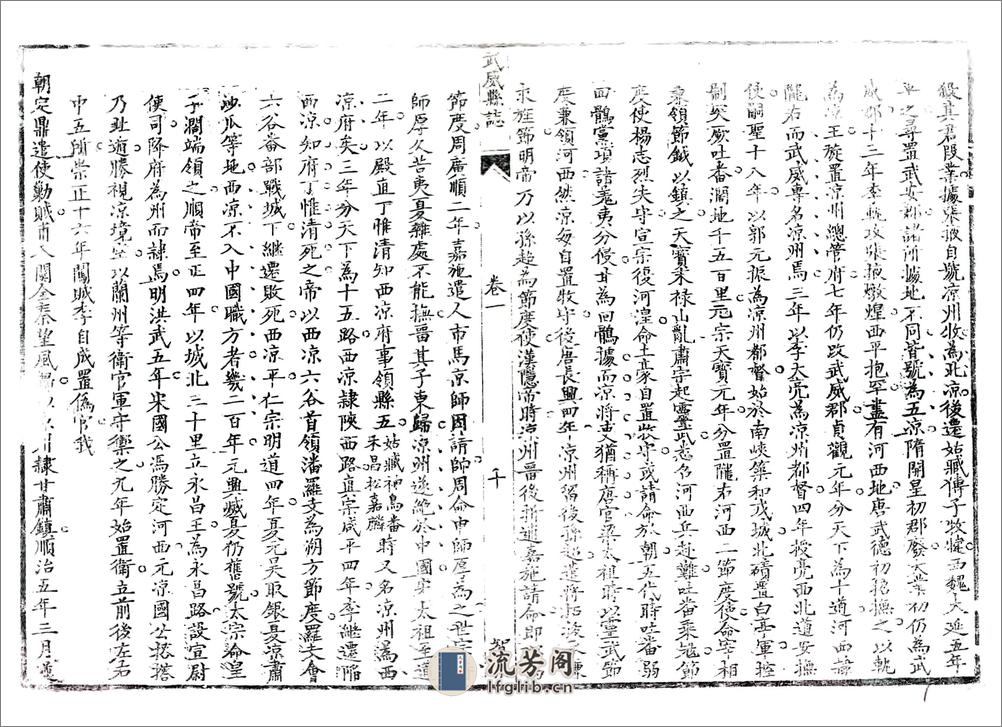 鎩真君段業據張掖自號涼州牧為北涼後遷姑臧傳子牧犍西魏太延五年
平之尋置武安郡諸州據地不同皆號為五涼隋開皇初郡廢大業初仍為武
威郡十三年李軌攻張掖燉煌西平抱罕盡有河西地唐武德初招撫之以軌
為涼王旋置涼州總管府七年仍改武威郡貞觀元年分天下為十道河西隸
隴右而武威專名涼州焉三年以李大亮為涼州都督四年授亮西北道安撫
使嗣聖十八年以郭元振為涼州都督始於南峽築和戎城北磧置白亭軍控
制突厥吐番闢地千五百里元宗天寶元年分置隴右河西二節度使命宰相
秉領節鉞以鎮之天寶末祿山亂肅宗起靈武悉召河西兵赴難吐番乘虛節
度使楊志烈失守宣宗復河湟命土豪自置牧守或請命於朝五代時吐番弱
回鶻黨項諸羌夷分侵甘為回鶻據而涼將吏猶稱唐官梁太祖時以靈武節
度兼領河西然涼每自置牧守後唐長興四年涼州留後孫超遣將拓
求旌節明帝乃以孫超為節度使漢隱帝時涼州晉後折逋嘉施請命即
武威縣誌
卷一
十
節度周廣順二年嘉施遣人市馬京師因請師周命申師厚為之
師厚久苦夷夏雜處不能撫晉其子東歸涼州遂絕於中國宋太祖至道
二年以殿直丁惟清知西涼府事領縣五姑臧神鳥番禾昌松嘉麟時又名涼州為西
涼府矣三年分天下為十五路西涼隸陝西路真宗咸平四年李繼遷陷
西涼知府丁惟清死之帝以西涼六谷首領潘羅支為朔方節度羅支會
六谷番部戰城下繼遷敗死西涼平仁宗明道四年夏元昊取銀夏涼肅
沙瓜等地西涼不入中國職方者幾二百年元興滅夏仍舊號太宗論皇
子闊端領之順帝至正四年以城北三十里立永昌王為永昌路設宣尉
使司降府為州而隸焉明洪武五年宋國公馮勝定河西元涼國公搭搭
乃北遁勝視涼境空以蘭州等衛官軍守禦之九年始置衛立前後左右
中五所崇正十六年闖賊李自成置偽官我
朝定鼎遣使勦賊甫入關全秦望風州隸甘肅鎮順治五年三月
流芳閣
lfglib.cn